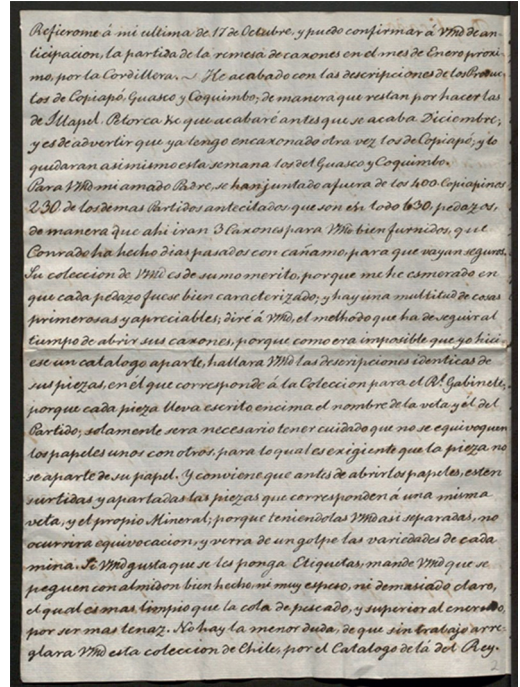 Refierome á mi ultima de 17 de Octubre, y puedo confirmar á Vmd de an-
ticipacion, la partida de la remesa de caxones en el mes de Enero proxi-
mo, por la Cordillera. ~ He acabado con las descripciones de los Produc-
tos de Copiapó, Guasco y Coquimbo; de manera que restan por hacer las
de Illapel, Petorca &c que acabaré antes que se acaba Diciembre,
y es de advertir que ya tengo encaxonado otra vez los de Copiapó; y lo
quidaran asimismo esta semana los del Guasco y Coquimbo.
Para Vmd mi amado Padre, se han juntado afuera de los 400 Copiapinos
230 de los demas Partidos antecitados, que son en todo 630, pedazos,
de manera que ahi iran 3 Caxones para Vmd bien furnidos, que
Conrado ha hecho dias pasados con cañamo, para que vayan seguros.
Su coleccion de Vmd es de sumo merito, porque me he esmerado en
que cada pedazo fuese bien caracterizado; y hay una multitud de cosas
primerosas y apreciables; diré á Vmd, el methodo que ha de seguir al
tiempo de abrir sus caxones, porque como era imposible que yo hici-
ese un catalogo aparte, hallara Vmd las descripciones identicas de
sus piezas, en él que corresponde á la Coleccion para el Rl. Gabinete,
porque cada pieza lleva escrito encima el nombre de la veta y él del
Partido; solamente sera necesario tener cuidado que no se equivoquen
los papeles unos con otros, para lo qual es exigiente que la pieza no
se aparte de su papel. Y conviene que antes de abrir los papeles, esten
surtidas y apartadas las piezas que corresponden á una misma
veta, y el propio Mineral; porque teniendolas Vmd asi separadas, no
ocurrira equivocacion, y verra de un golpe las variedades de cada
minia. Si Vmd gusta que se les ponga Etiquetas, mande Vmd que se
peguen con almidon bien hecho, ni muy espeso, ni demasiado claro,
el qual es mas limpio que la cola de pescado, y superior al
por ser mas tenaz. No hay la menor duda, de que sin trabajo arre-
glara Vmd esta coleccion de Chile, por el Catalogo de lá del Rey.
2